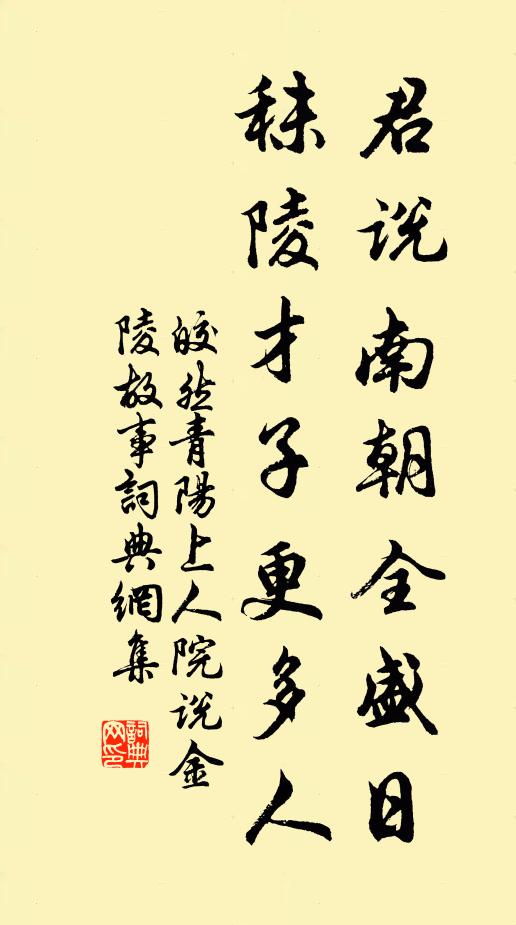 君说南朝全盛日
秣陵才子更多人
皎然青陽上人院说金
陵故事詞典網集
詞典
网印